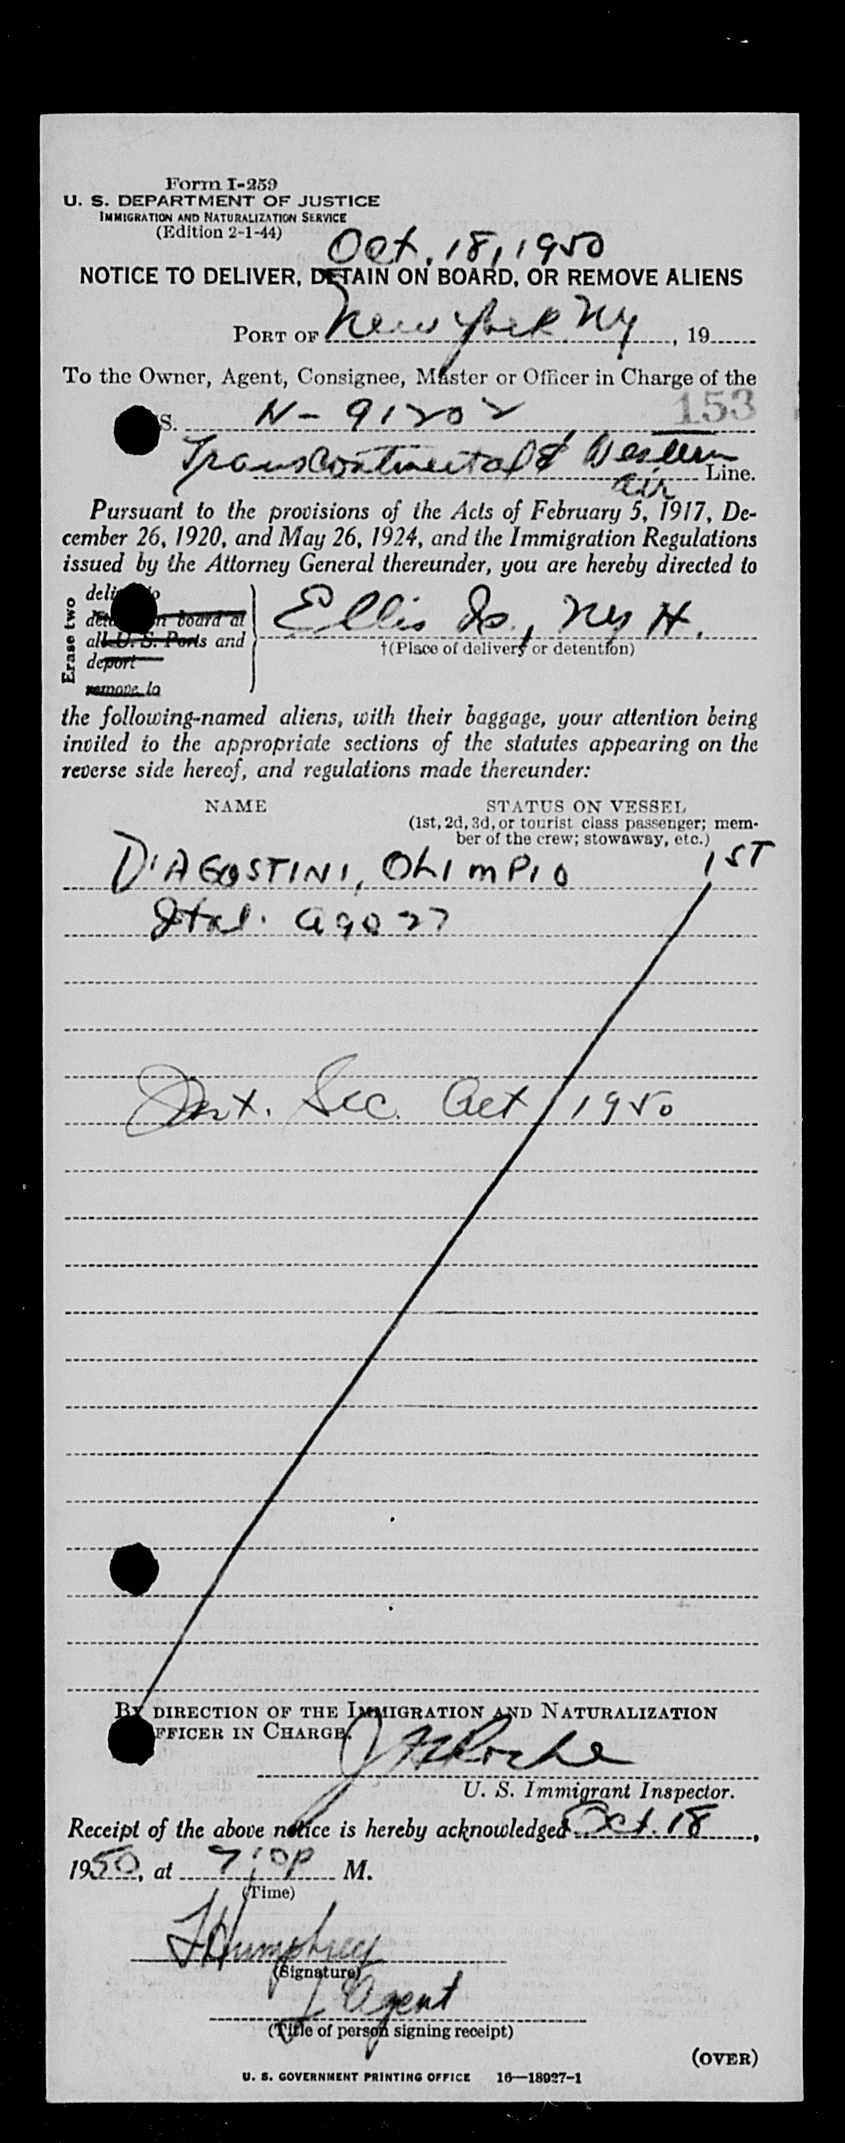 Form I-259
U. S. DEPARTMENT OF JUSTICE
IMMIGRATION AND NATURALIZATION SERVICE
(Edition 2-1-44)
Oct. 18, 1950
NOTICE TO DELIVER, DETAIN ON BOARD, OR REMOVE ALIENS
PORT OF New York, NY, 19
To the Owner, Agent, Consignee, Master or Officer in Charge of the
153
S. N-91202
Transcontinental & Western
Air Line.
Pursuant to the provisions of the Acts of February 5, 1917, De-
cember 26, 1920, and May 26, 1924, and the Immigration Regulations
issued by the Attorney General thereunder, you are hereby directed to
Erase two
board at
all U. S. Ports and
deport
remove to
Ellis Is., NY H.
†(Place of delivery or detention)
the following-named aliens, with their baggage, your attention being
invited to the appropriate sections of the statutes appearing on the
reverse side hereof, and regulations made thereunder:
NAME STATUS ON VESSEL
(1st, 2d, 3d, or tourist class passenger; mem-
ber of the crew; stowaway, etc.)
D'AGOSTINI, OLIMPIO 1ST
Ital. age 27
Int. Sec. Act 1950
BY DIRECTION OF THE IMMIGRATION AND NATURALIZATION
OFFICER IN CHARGE.
Roche
U. S. Immigrant Inspector.
Receipt of the above notice is hereby acknowledged Oct. 18,
1950, at P M.
(Time)
Humphrey
(Signature)
Agent
(Title of person signing receipt)
(OVER)
U. S. GOVERNMENT PRINTING OFFICE 16—18927-1